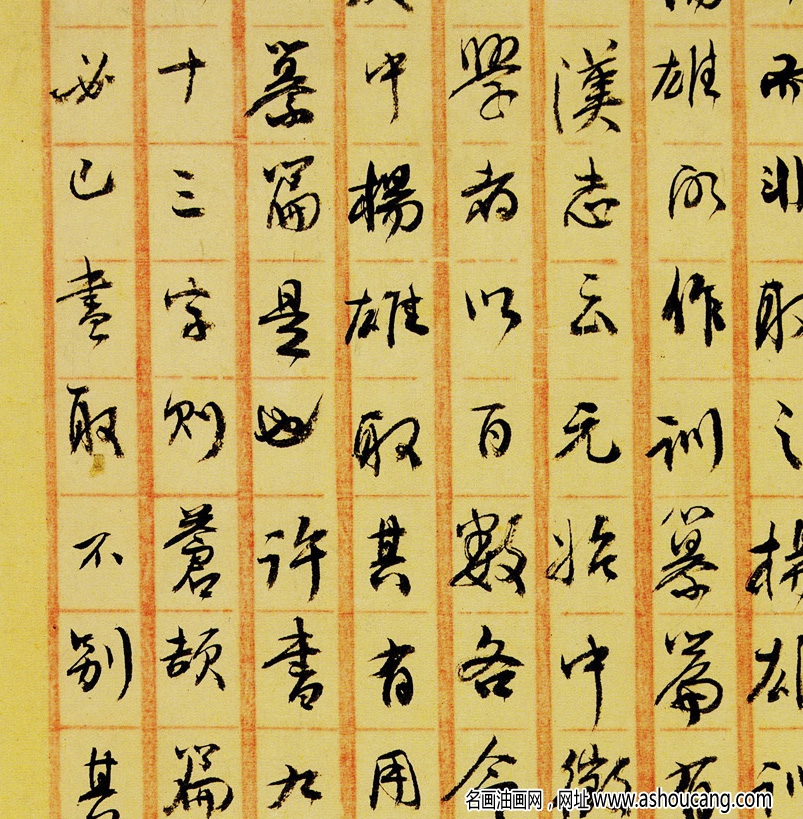 而非取之楊雄訓
雄所作訓纂篇有
漢志云元始中徵
學者以百數各令
中楊雄取其有用
纂篇是也許書九
十三字則蒼頡篇
必已盡取不別其
名画油画网，网址 www.ashoucang.com